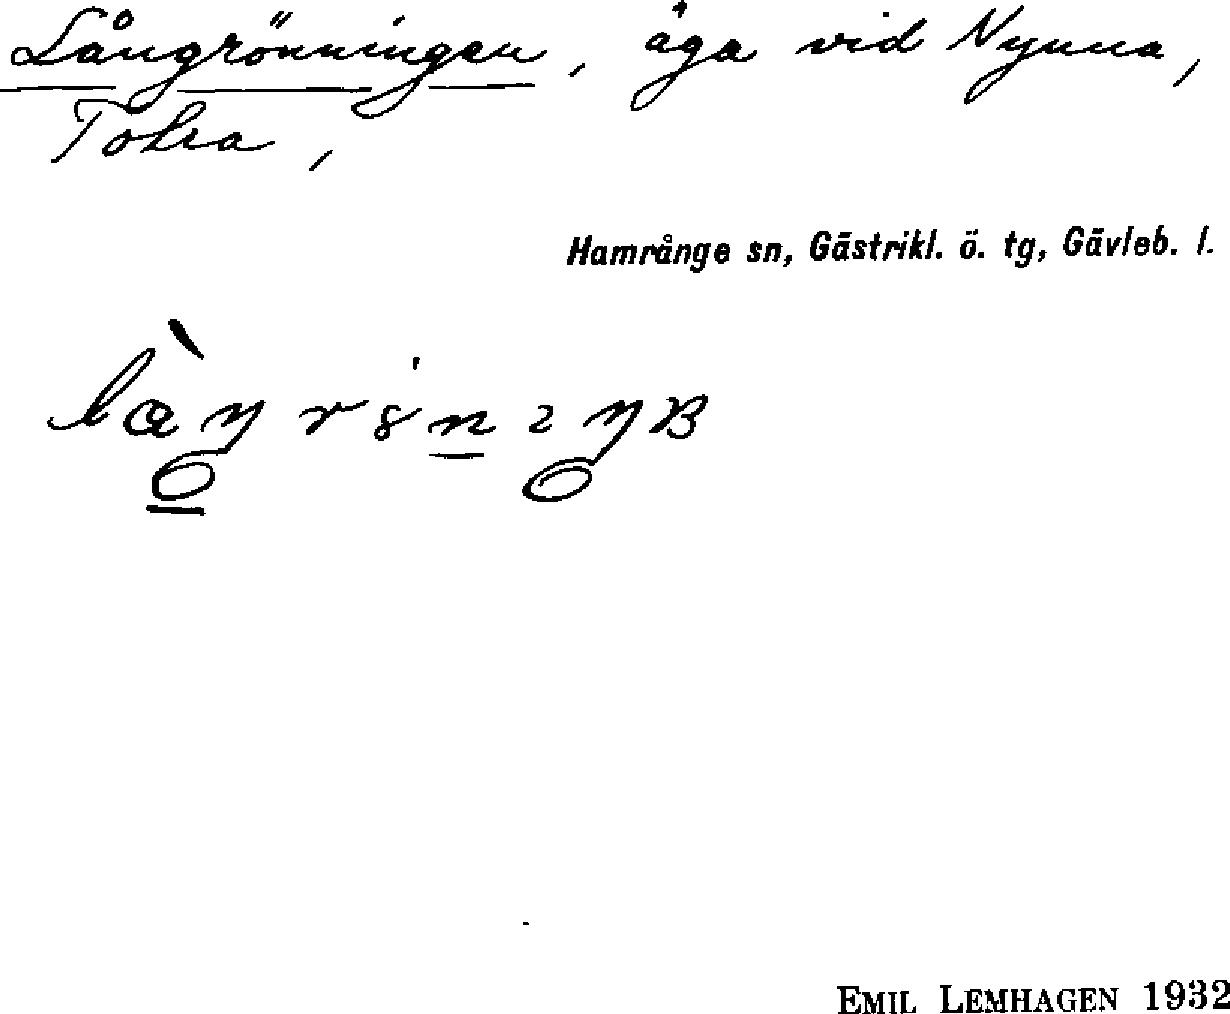 Långrönningen, äga vid Nynna,
Tolra,
Hamrånge sn, Gästrikl. ö. tg, Gävleb. l.
EMIL LEMHAGEN 1932